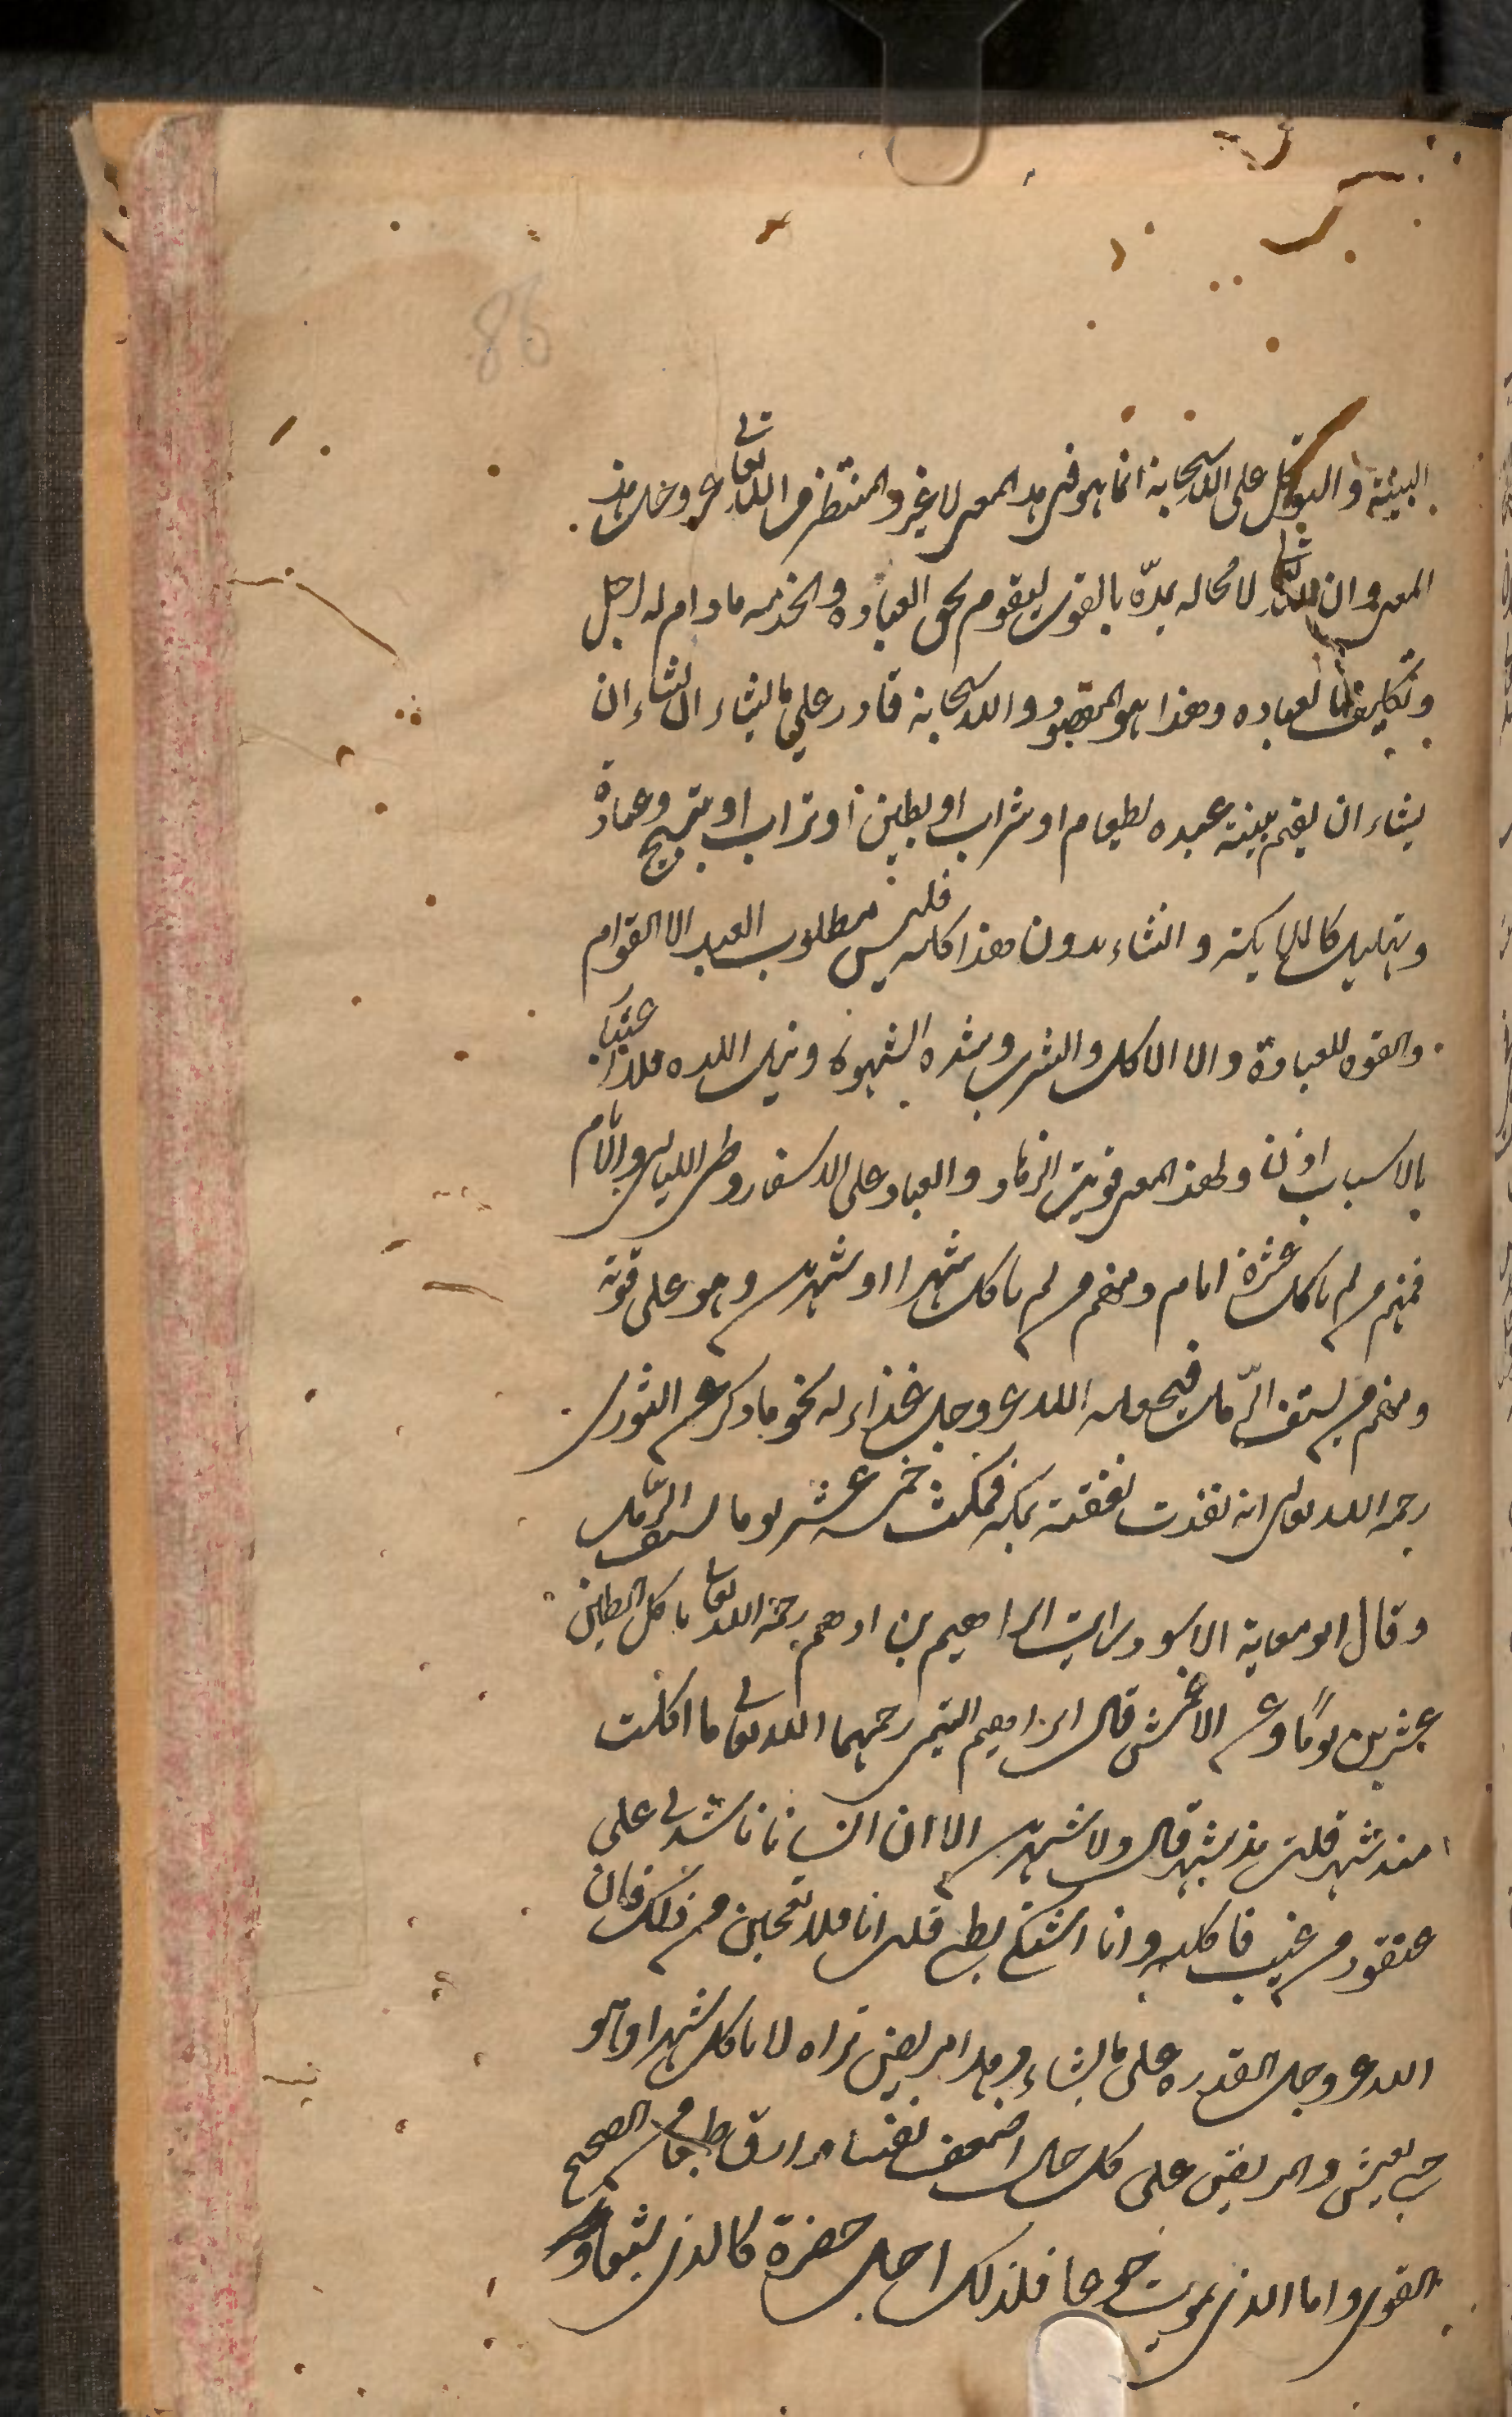 86
البنية والتوكل على الله سبحانه انما هو فى هذا المعنى لا غير والمنتظر من الله تعالى عز وجل هذا
المعنى وان الله تعالى لا محاله يمدّه بالقوى ليقوم بحق العباده والخدمه ما دام له اجل
وتكليف بالعباده وهذا هو المقصود والله سبحانه قادر على ما يشاء ان شاء ان
يشاء ان يقيم بنية عبده بطعام او شراب او بطين او تراب او بتسبيح وعبادة
وتهليل كالملايكة وان شاء بدون هذا كله فليس مطلوب العبد الا القوام
والقوه للعبادة والا الاكل والشرب وشدة الشهوة ونيل اللذه فلا اعتبار
بالاسباب اذن ولهذا المعنى قويت الزهاد والعباد على الاسفار وطى الليالى والايام
فمنهم من لم ياكل عشرة ايام ومنهم من لم ياكل شهرا او شهرين وهو على قوته
ومنهم من يستف الرّمل فيجعله الله عز وجل غذاء له نحو ما ذكر عن الثورى
رحمه الله تعالى انه نفذت نفقته بمكة فمكث خمسة عشر يوما يستف الرّمل
وقال ابو معاوية الاسود رايت ابراهيم بن ادهم رحمه الله تعالى ياكل الطين
عشرين يوماً وعن الاعمش قال ابراهيم التيمى رحمهما الله تعالى ما اكلت
منذ شهر قلت منذ شهر قال ولا شهرين الا ان انسانا ناشدنى على
عنقود من عنب فاكلته وانا اشتكى بطنى قلت انا فلا تعجبن من ذلك فان
الله عز وجل القدره على ما يشاء وهذا مريض تراه لا ياكل شهرا وهو
حى يعيش والمريض على كل حال اضعف نفسا وارق طبعا من الصحيح
القوى واما الذى يموت جوعا فلذلك اجل حضرة كالذى يشبعا و